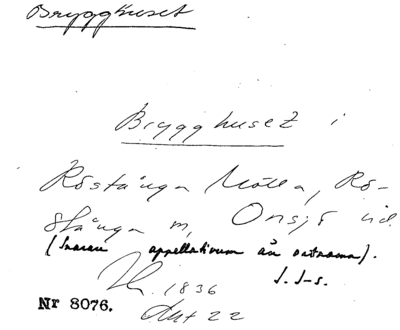 Brygghuset
Brygghuset i
Röstånga Mölla, Rö-
stånga sn, Onsjö hd.
(Snarare appellativum än ortnamn).
J. J-s.
1836
Nr 8076.
22